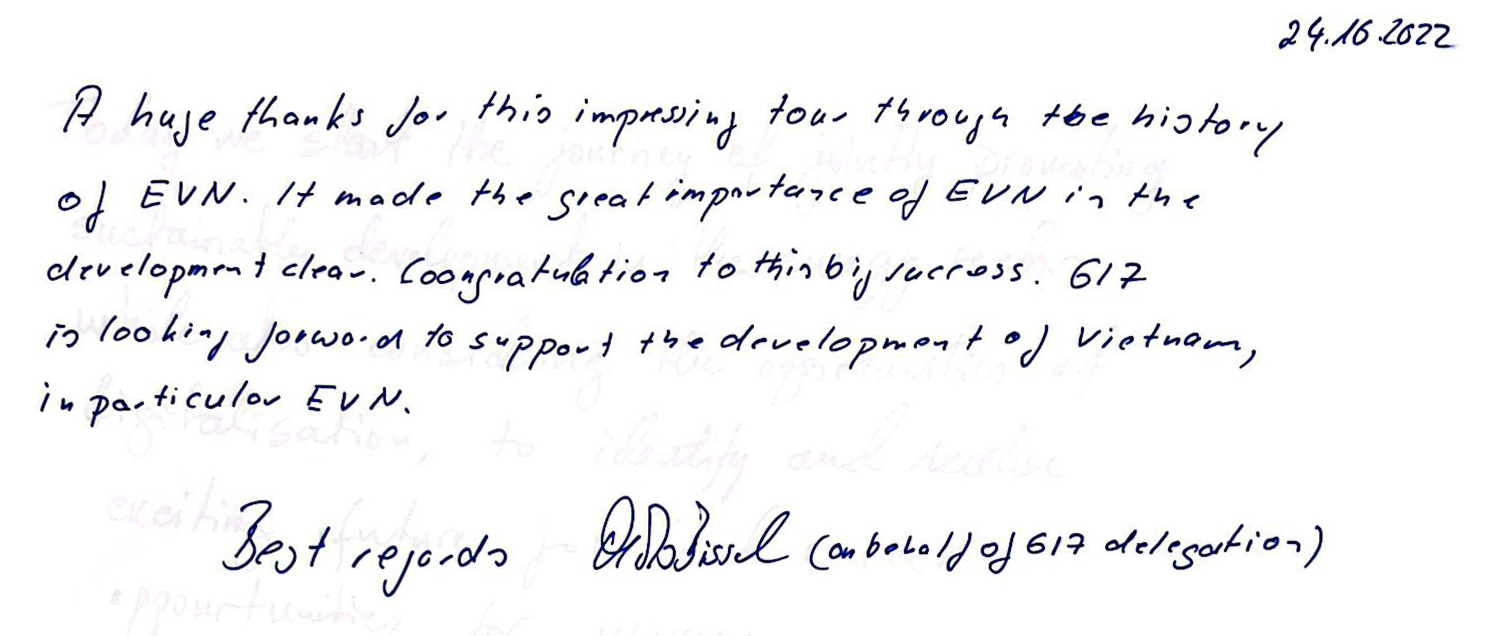 24.10.2022
A huge thanks for this impressing tour through the history
of EVN. It made the great importance of EVN in the
development clear. Coongratulation to this big success. GIZ
is looking forward to support the development of Vietnam,
in particular EVN.
Best regards (on behalf of GIZ delegation)